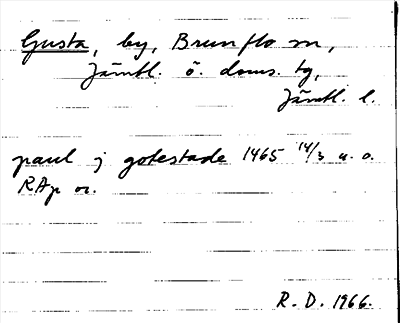 Gusta, by, Brunflo sn,
Jämtl. ö. doms. tg,
Jämtl. l.
paul j gotestade 1465 14/3 u. o.
RAp or.
R. D. 1966.